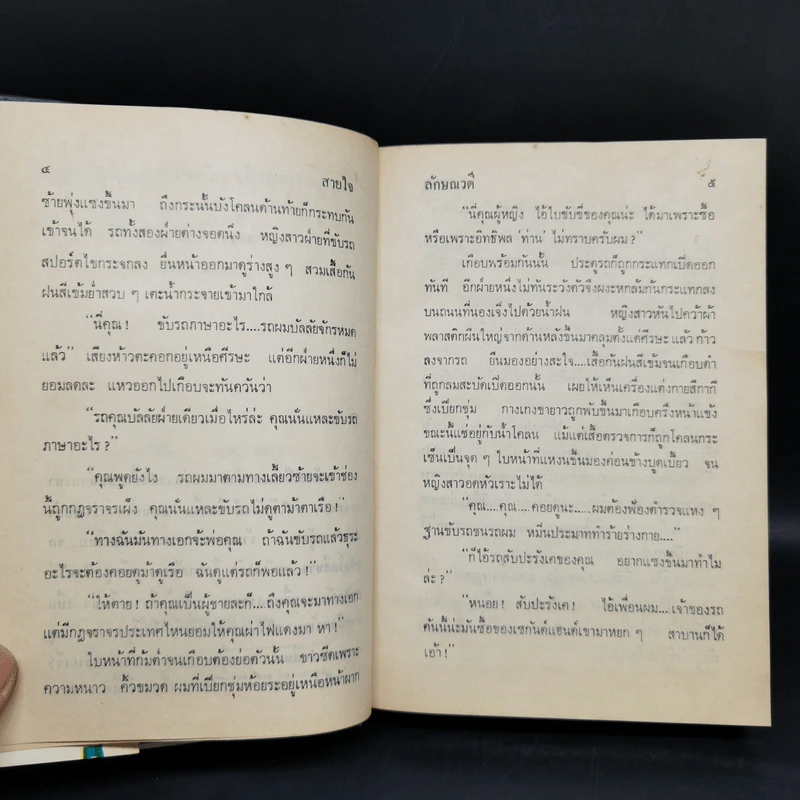 ๔
สายใจ
ซ้ายพุ่งแซงขึ้นมา ถึงกระนั้นบังโคลนด้านท้ายก็กระทบกัน
เข้าจนได้ รถทั้งสองฝ่ายต่างจอดนิ่ง หญิงสาวฝ่ายที่ขับรถ
สปอร์ตไขกระจกลง ยื่นหน้าออกมาดูร่างสูง ๆ สวมเสื้อกัน
ฝนสีเข้มย่ำสวบ ๆ เตะน้ำกระจายเข้ามาใกล้
“นี่คุณ! ขับรถภาษาอะไร....รถผมบัลลัยจักรหมด
แล้ว” เสียงห้าวตะคอกอยู่เหนือศีรษะ แต่อีกฝ่ายหนึ่งก็ไม่
ยอมลดละ แหวออกไปเกือบจะทันควันว่า
“รถคุณบัลลัยฝ่ายเดียวเมื่อไหร่ล่ะ คุณนั่นแหละขับรถ
ภาษาอะไร?”
“คุณพูดยังไง รถผมมาตามทางเลี้ยวซ้ายจะเข้าช่อง
นี้ถูกกฎจราจรเผ็ง คุณนั่นแหละขับรถไม่ดูตาม้าตาเรือ!”
“ทางฉันมันทางเอกจ้ะพ่อคุณ ถ้าฉันขับรถแล้วธุระ
อะไรจะต้องคอยดูม้าดูเรือ ฉันดูแต่รถก็พอแล้ว!”
“ให้ตาย! ถ้าคุณเป็นผู้ชายละก็....ถึงคุณจะมาทางเอก
แต่มีกฎจราจรประเทศไหนยอมให้คุณผ่าไฟแดงมา หา!”
ใบหน้าที่ก้มต่ำจนเกือบต้องย่อตัวนั้น ขาวซีดเพราะ
ความหนาว คิ้วขมวด ผมที่เปียกชุ่มห้อยระอยู่เหนือหน้าผาก
ลักษณวดี
๕
“นี่คุณผู้หญิง ไอ้ใบขับขี่ของคุณน่ะ ได้มาเพราะซื้อ
หรือเพราะอิทธิพล ‘ท่าน’ ไม่ทราบครับผม?”
เกือบพร้อมกันนั้น ประตูรถก็ถูกกระแทกเปิดออก
ทันที อีกฝ่ายหนึ่งไม่ทันระวังตัวจึงผงะหกล้มก้นกระแทกลง
บนถนนที่นองเจิ่งไปด้วยน้ำฝน หญิงสาวหันไปคว้าผ้า
พลาสติกผืนใหญ่จากด้านหลังขึ้นมาคลุมตั้งแต่ศีรษะ แล้ว ก้าว
ลงจากรถ ยืนมองอย่างสะใจ....เสื้อกันฝนสีเข้มจนเกือบดำ
ที่ถูกลมสะบัดเปิดออกนั้น เผยให้เห็นเครื่องแต่งกายสีกากี
ซึ่งเปียกชุ่ม กางเกงขายาวถูกพับขึ้นมาเกือบครึ่งหน้าแข้ง
ขณะนี้แช่อยู่กับน้ำโคลน แม้แต่เสื้อตรวจการก็ถูกโคลนกระ
เซ็นเป็นจุด ๆ ใบหน้าที่แหงนขึ้นมองค่อนข้างบูดเบี้ยว จน
หญิงสาวอดหัวเราะไม่ได้
“คุณ....คุณ....คอยดูนะ....ผมต้องฟ้องตำรวจแหง ๆ
ฐานขับรถชนรถผม หมิ่นประมาททำร้ายร่างกาย....”
“ก็ไอ้รถสับปะรังเคของคุณ อยากแซงขึ้นมาทำไม
ล่ะ?”
“หนอย! สับปะรังเค! ไอ้เพื่อนผม....เจ้าของรถ
คันนี้น่ะมันซื้อของเซกันด์แฮนด์เขามาหยก ๆ สาบานก็ได้
เอ้า!”